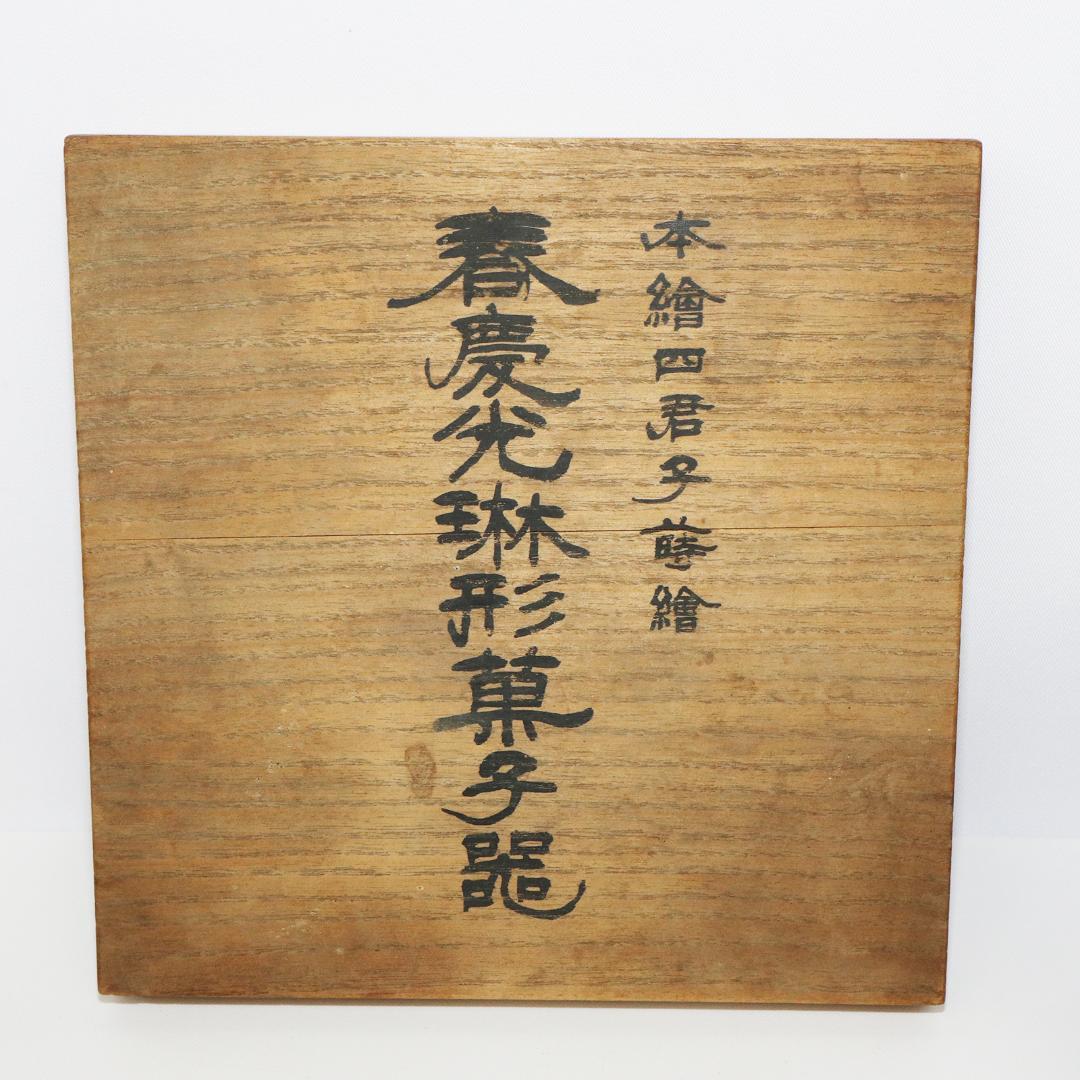 本繪四君子蒔繪
春慶光琳形菓子器